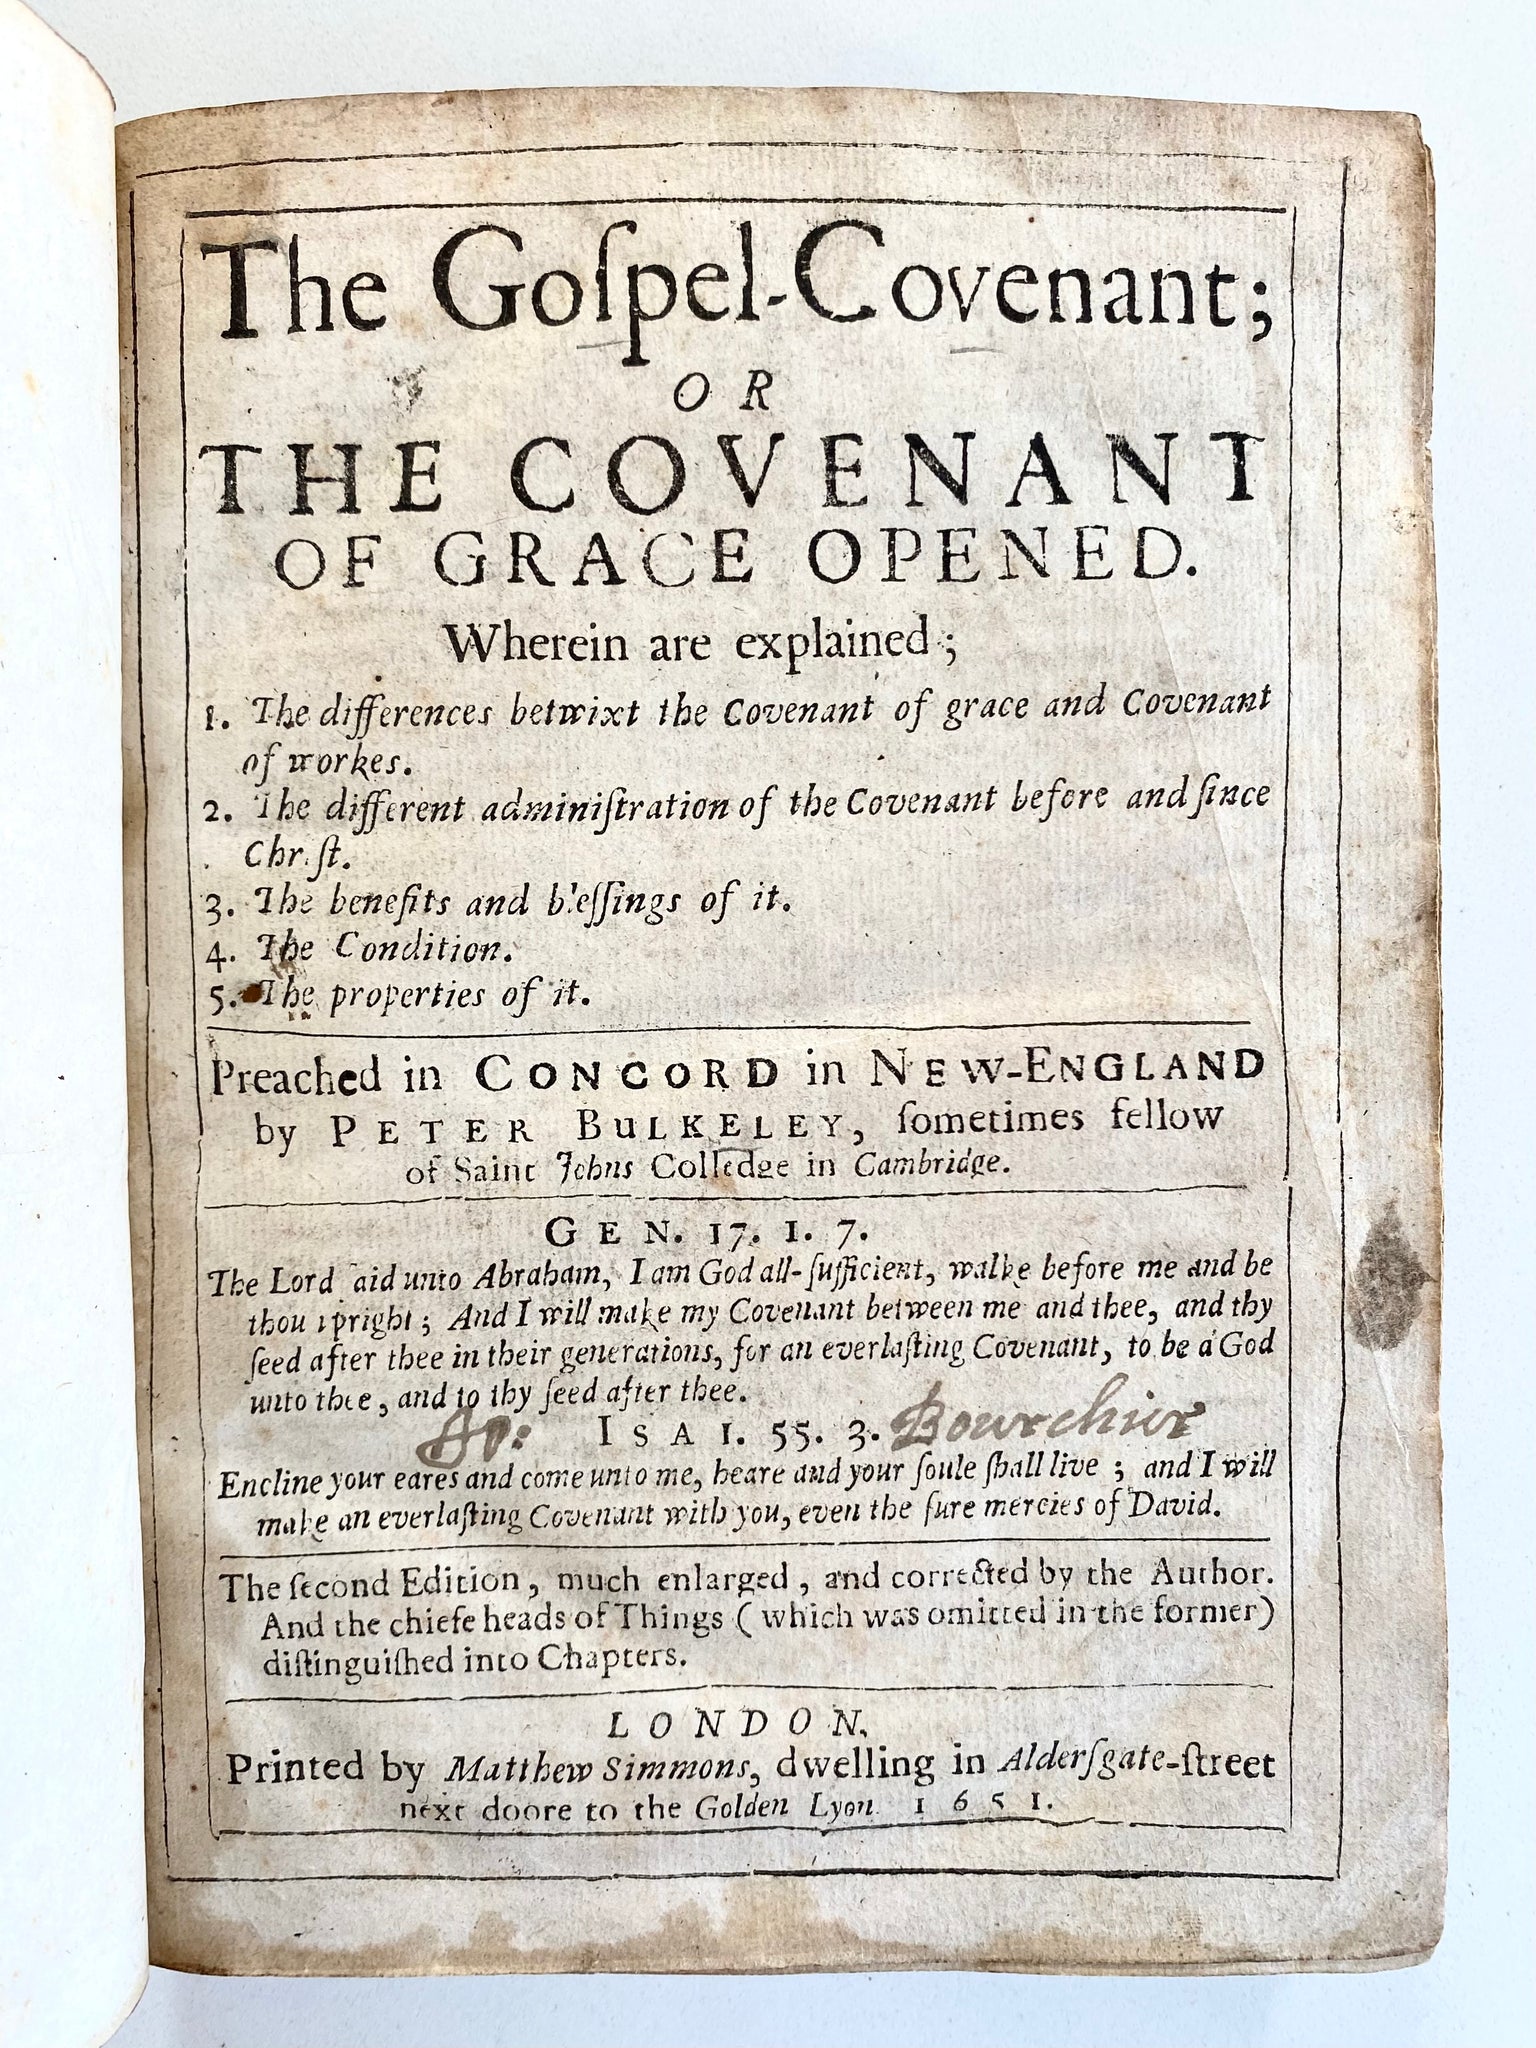 The Goſpel-Covenant;
OR
THE COVENANT
OF GRACE OPENED.
Wherein are explained;
1. The differences betwixt the Covenant of grace and Covenant
of workes.
2. The different adminiſtration of the Covenant before and ſince
Chriſt.
3. The benefits and bleſſings of it.
4. The Condition.
5. The properties of it.
Preached in CONCORD in NEW-ENGLAND
by PETER BULKELEY, ſometimes fellow
of Saint Johns Colledge in Cambridge.
GEN. 17. 1. 7.
The Lord ſaid unto Abraham, I am God all-ſufficient, walke before me and be
thou upright; And I will make my Covenant between me and thee, and thy
ſeed after thee in their generations, for an everlaſting Covenant, to be a God
unto thee, and to thy ſeed after thee.
ISAI. 55. 3. Bourchier
Encline your eares and come unto me, heare and your ſoule ſhall live; and I will
make an everlaſting Covenant with you, even the ſure mercies of David.
The ſecond Edition, much enlarged, and corrected by the Author.
And the chiefe heads of Things (which was omitted in the former)
diſtinguiſhed into Chapters.
LONDON,
Printed by Matthew Simmons, dwelling in Alderſgate-ſtreet
next doore to the Golden Lyon 1651.